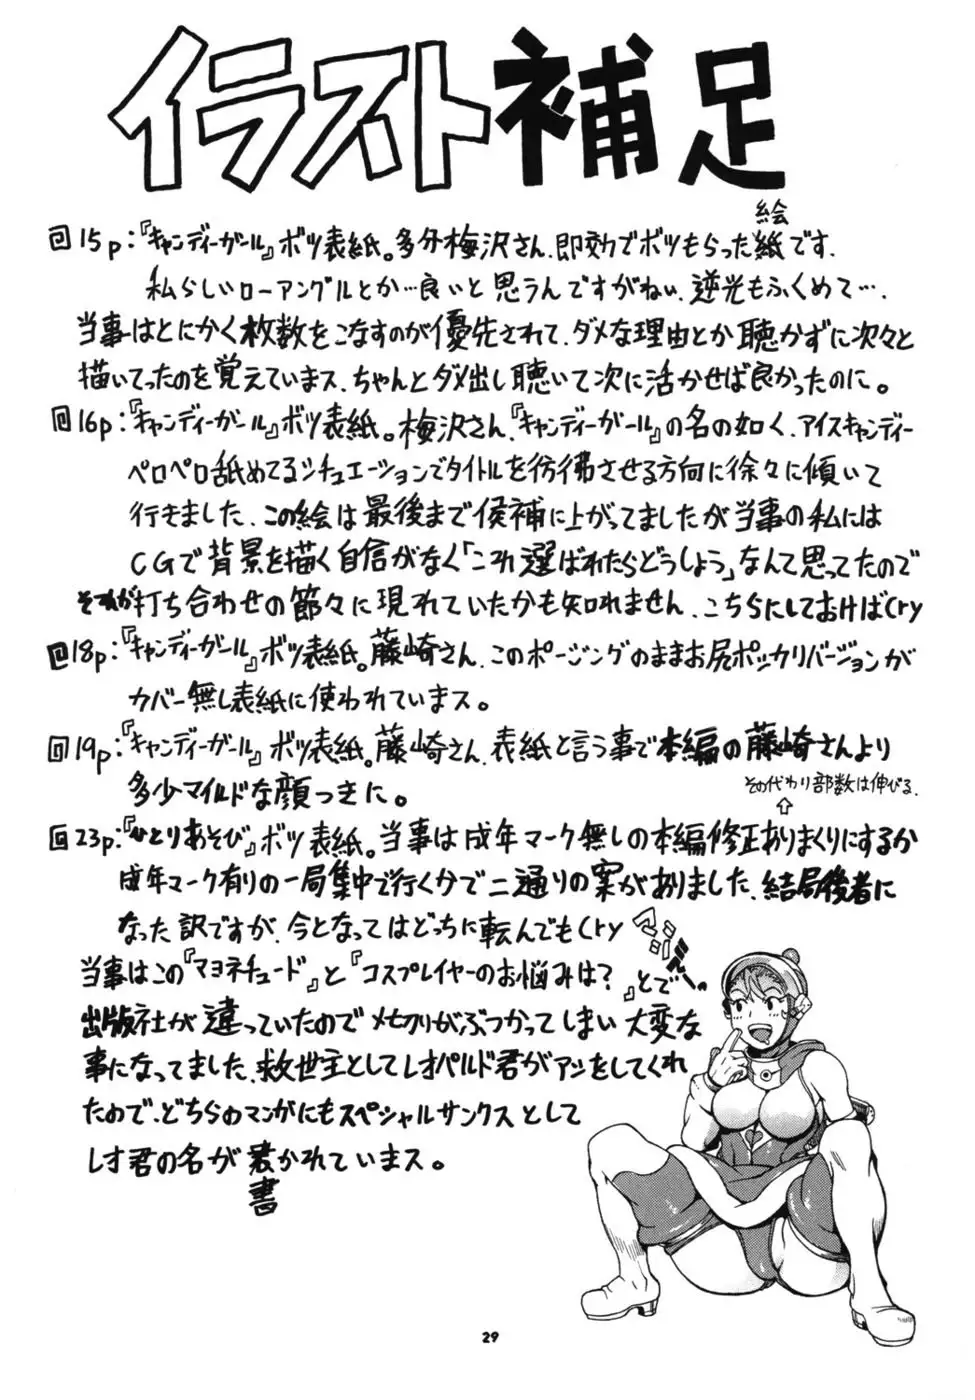 イラスト補足
回15p:『キャンディーガール』ボツ表紙。多分梅沢さん、即効でボツもらった紙です。
絵
私らしいローアングルとか…良いと思うんですがねぃ、逆光もふくめて…。
当事はとにかく枚数をこなすのが優先されて、ダメな理由とか聴かずに次々と
描いてったのを覚えていまス、ちゃんとダメ出し聴いて次に活かせば良かったのに。
回16p:『キャンディーガール』ボツ表紙。梅沢さん、『キャンディーガール』の名の如く、アイスキャンディー
ペロペロ舐めてるシチュエーションでタイトルを彷彿させる方向に徐々に傾いて
行きました、この絵は最後まで候補に上がってましたが当事の私には
CGで背景を描く自信がなく「これ選ばれたらどうしよう」なんて思ってたので
それが打ち合わせの節々に現れていたかも知れません、こちらにしておけばCry
回18p:『キャンディーガール』ボツ表紙。藤崎さん、このポージングのままお尻ポッカリバージョンが
カバー無し表紙に使われていまス。
回19p:『キャンディーガール』ボツ表紙。藤崎さん、表紙と言う事で本編の藤崎さんより
多少マイルドな顔つきに。
その代わり部数は伸びる。
回23p:『ひとりあそび』ボツ表紙。当事は成年マーク無しの本編修正ありまくりにするか
成年マーク有りの一局集中で行く分で二通りの案がありました、結局後者に
なった訳ですが、今となってはどっちに転んでもCry
当事はこの『マヨネチュード』と『コスプレイヤーのお悩みは?』とで
出版社が違っていたので〆切りがぶつかってしまい大変な
事になってました、救世主としてレオパルド君がアシをしてくれ
たので、どちらのマンガにもスペシャルサンクスとして
レオ君の名が書かれていまス。
書
29